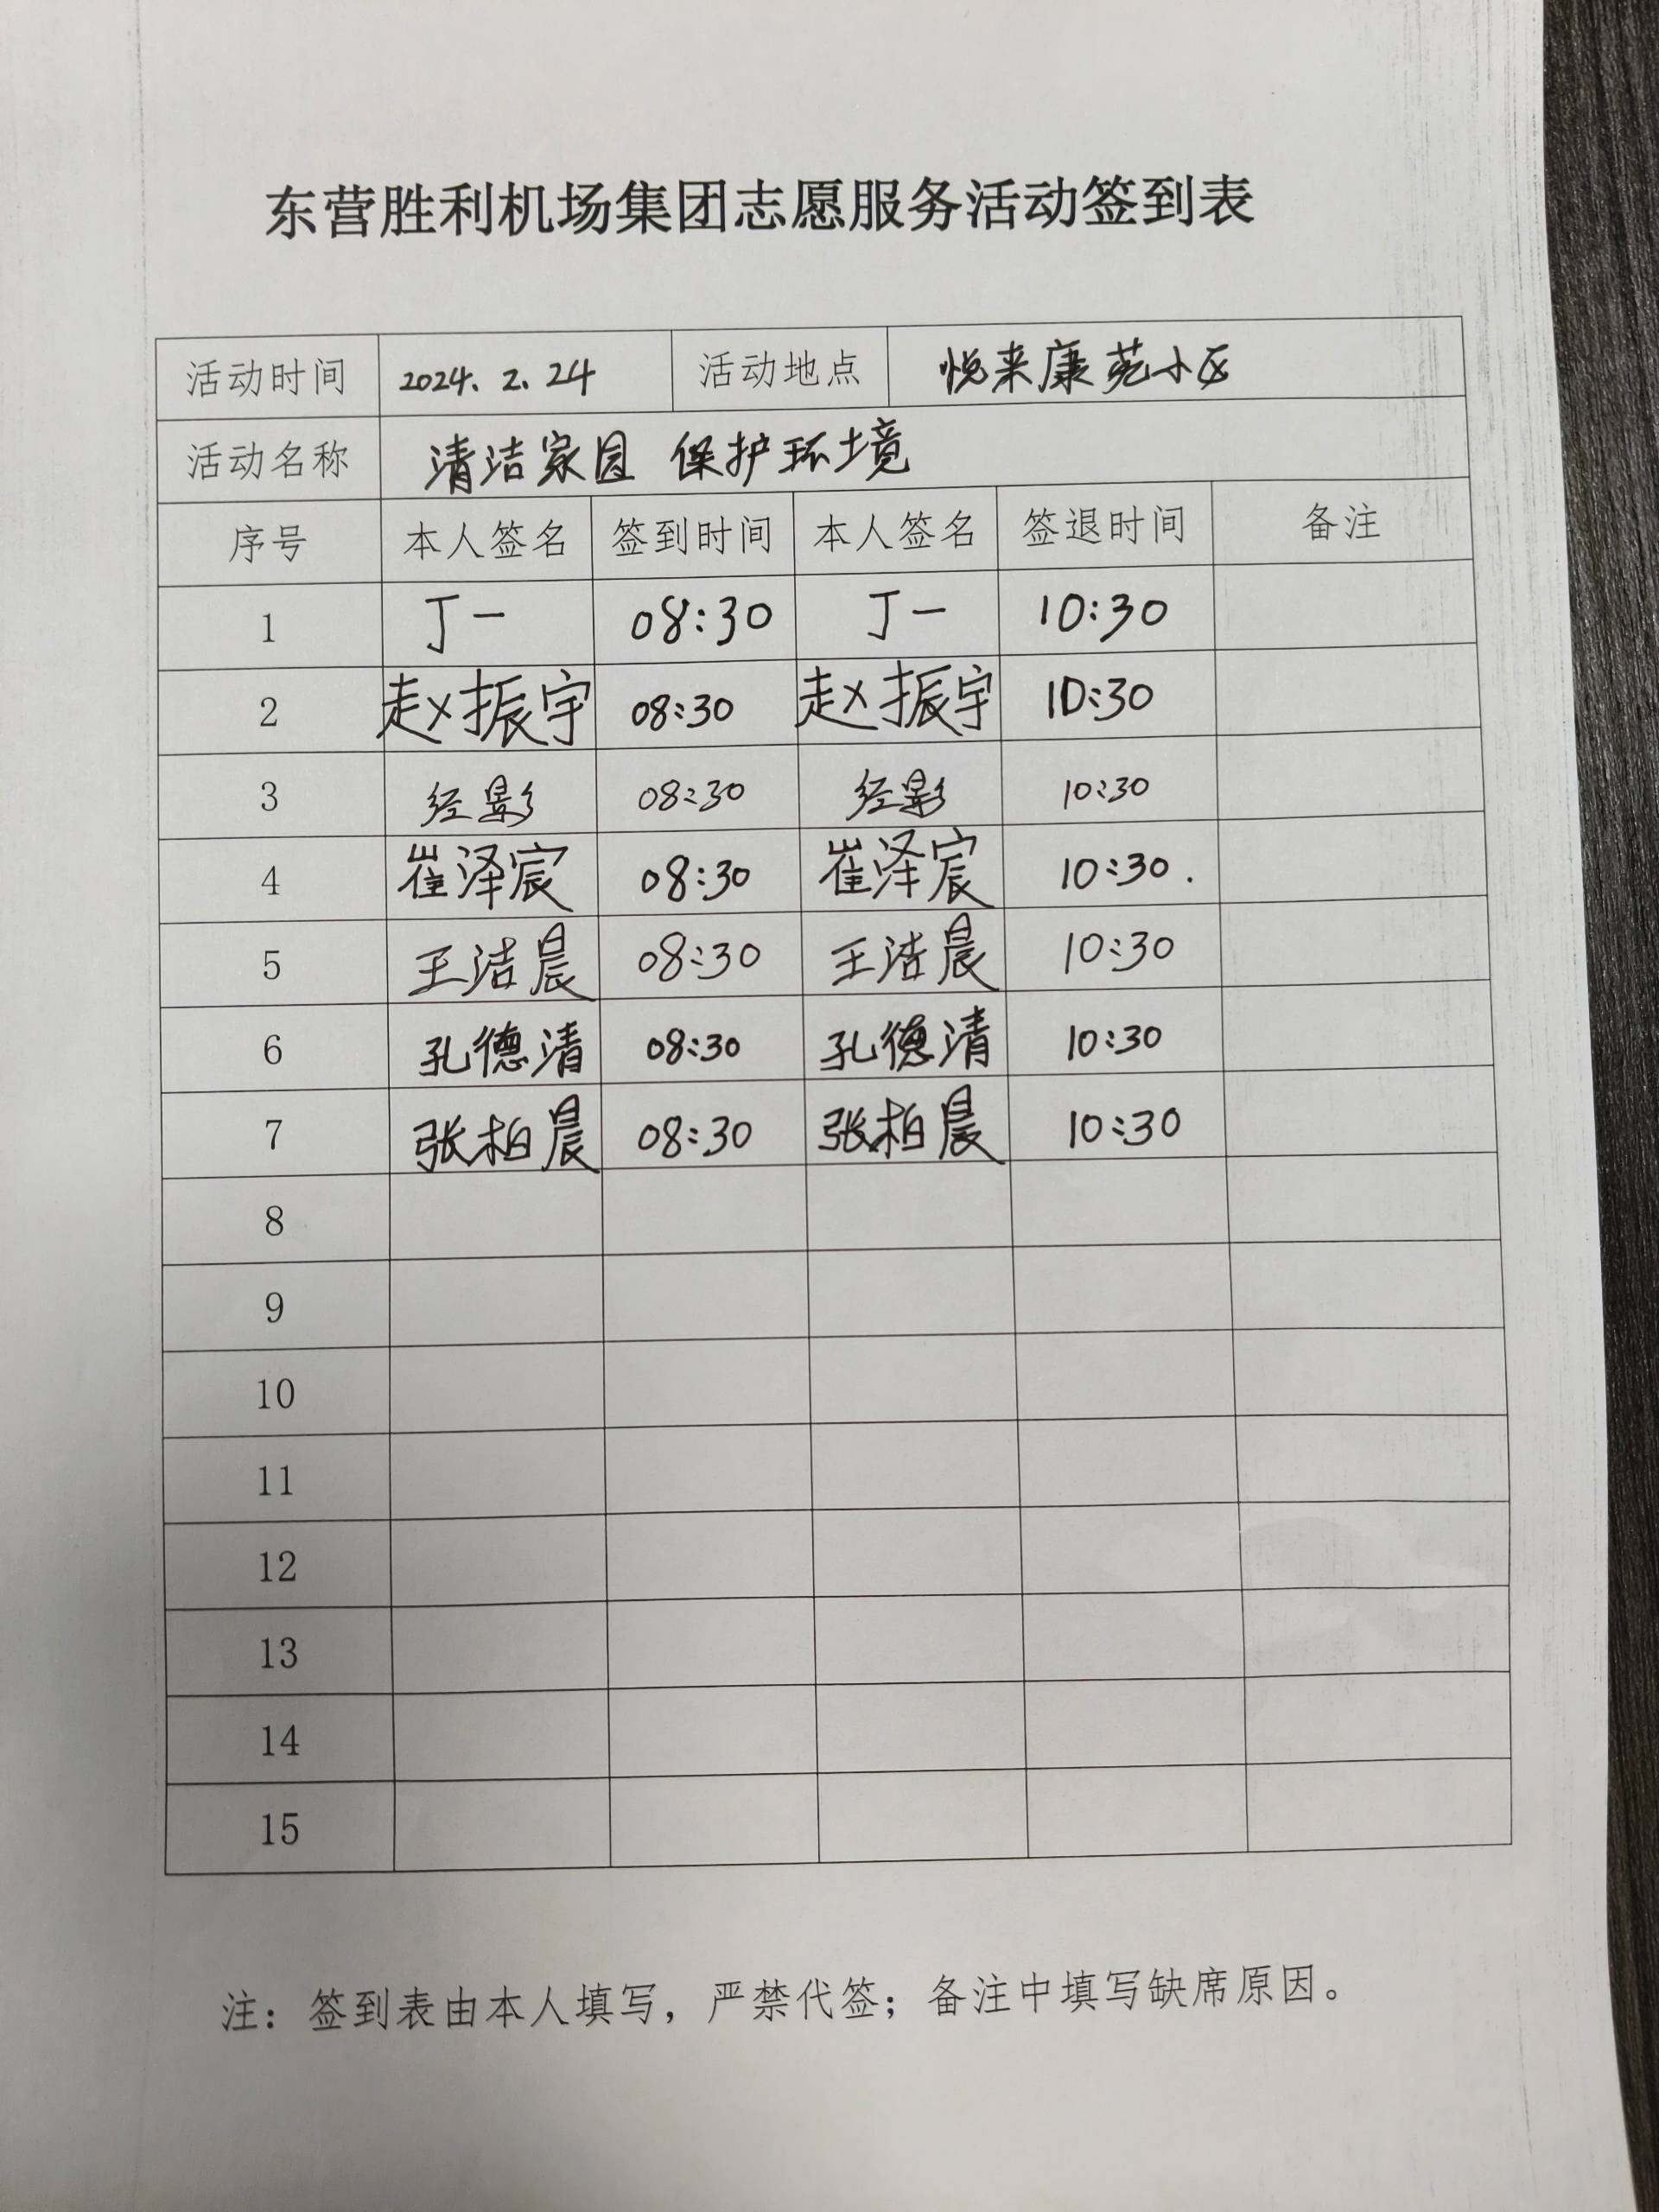 东营胜利机场集团志愿服务活动签到表
活动时间 2024.2.24 活动地点 悦来康苑小区
活动名称 清洁家园 保护环境
序号 本人签名 签到时间 本人签名 签退时间 备注
1 丁一 08:30 丁一 10:30
2 赵振宇 08:30 赵振宇 10:30
3 经影 08:30 经影 10:30
4 崔泽宸 08:30 崔泽宸 10:30.
5 王洁晨 08:30 王洁晨 10:30
6 孔德清 08:30 孔德清 10:30
7 张柏晨 08:30 张柏晨 10:30
8
9
10
11
12
13
14
15
注：签到表由本人填写，严禁代签；备注中填写缺席原因。